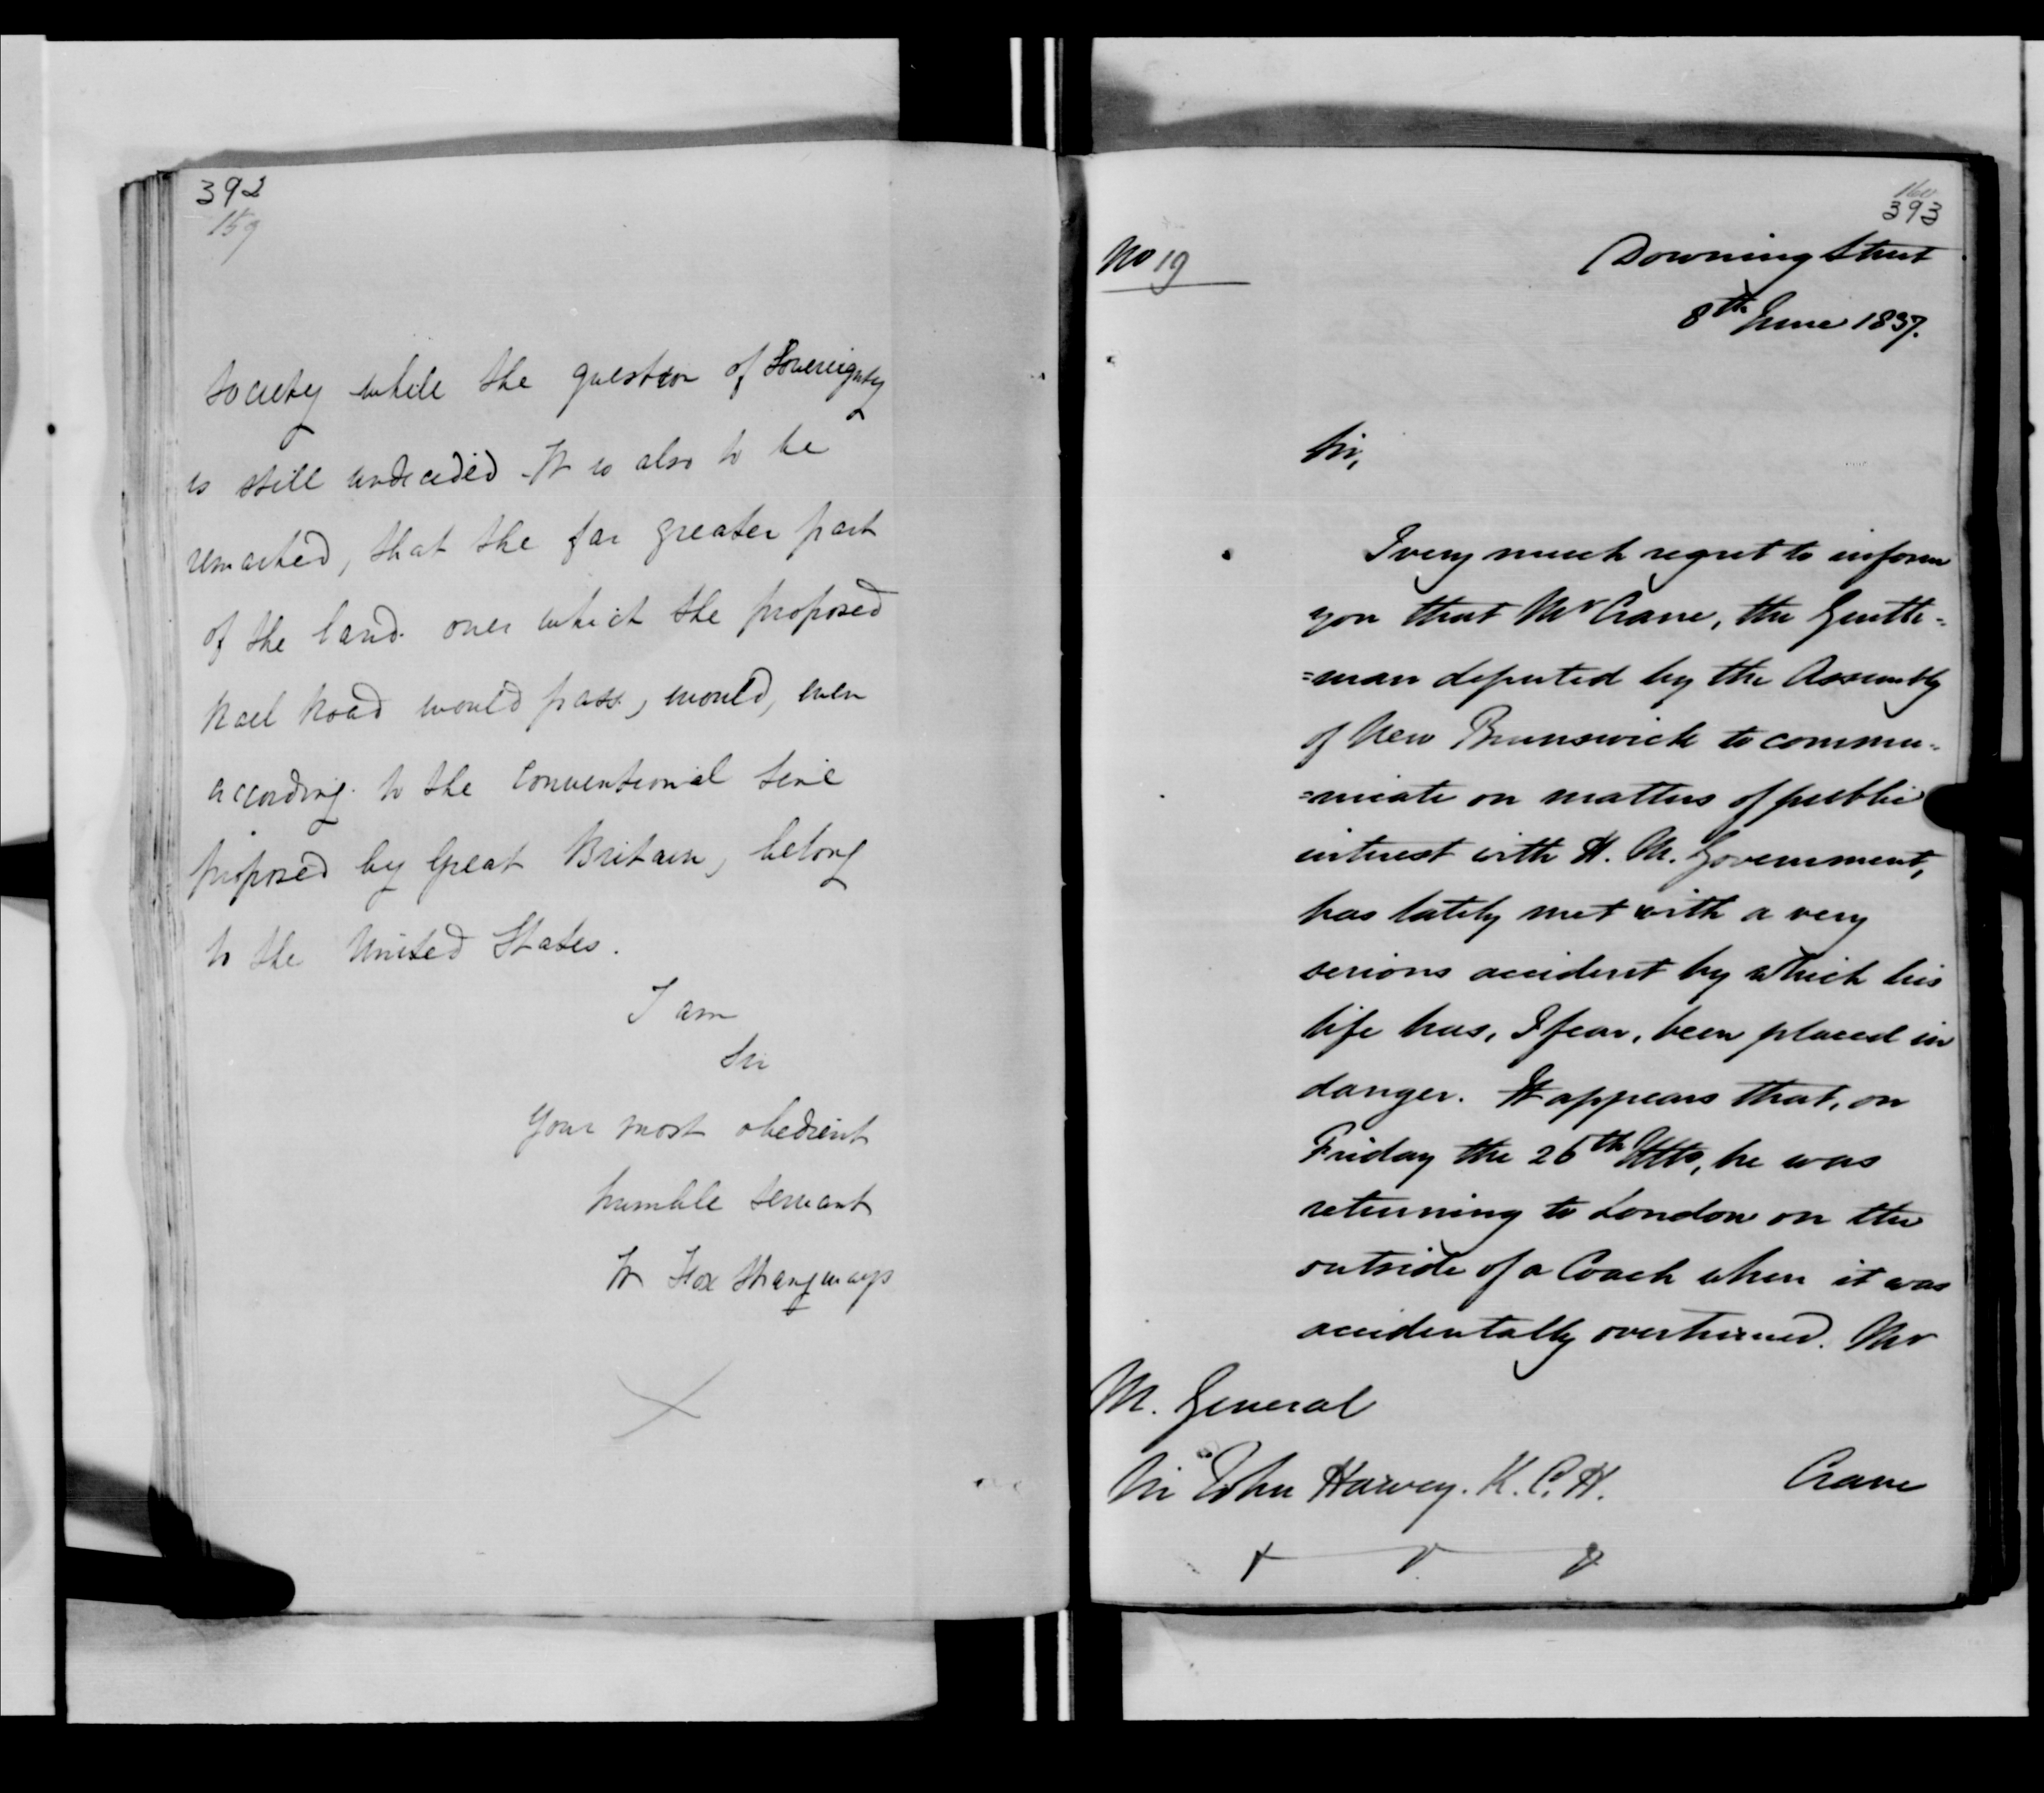 392
159
Society while the question of Sovereignty
is still undecided. It is also to be
remarked, that the far greater part
of the land over which the proposed
Rail Road would pass, would, even
according to the Conventional line
proposed by Great Britain, belong
to the United States.
I am
Sir
Your most obedient
humble Servant
W Fox Strangways
160
393
No 19
Downing Street
8th June 1837.
Sir,
I very much regret to inform
you that Mr Crane, the Gentle=
=man deputed by the Assembly
of New Brunswick to commu=
=nicate on matters of public
interest with H. M. Government,
has lately met with a very
serious accident by which his
life has, I fear, been placed in
danger. It appears that, on
Friday the 26th Ulto, he was
returning to London on the
outside of a Coach when it was
accidentally overturned. Mr
M. General
Sir John Harvey. K. C. H.
Crane